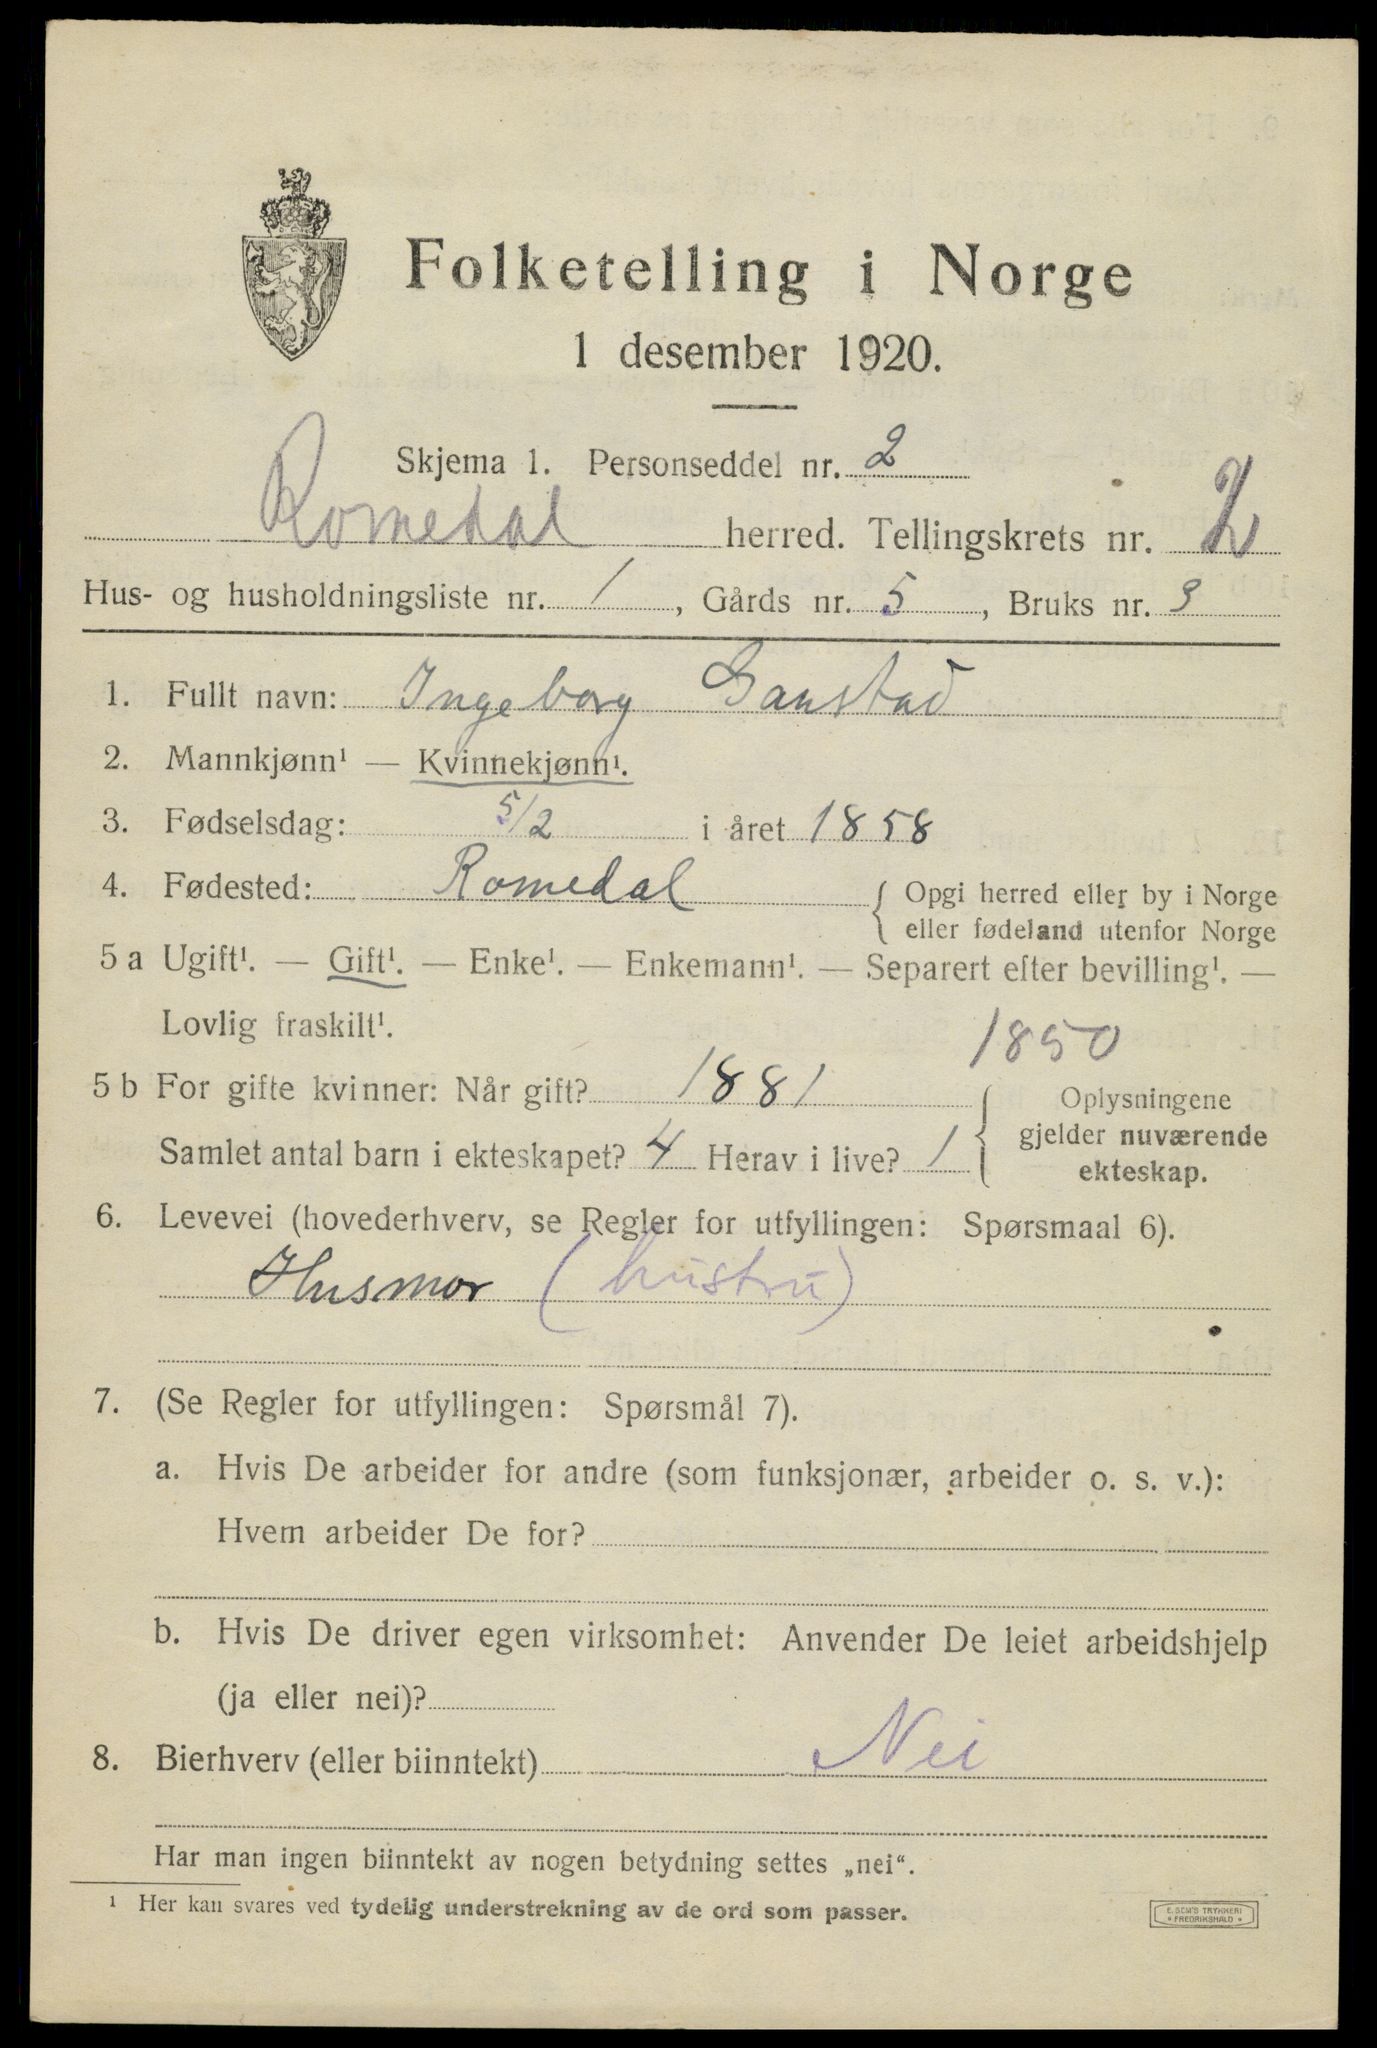 Folketelling i Norge
1 desember 1920.
Skjema 1. Personseddel nr. 2
Romedal herred. Tellingskrets nr. 2
Hus- og husholdningsliste nr. 1, Gårds nr. 5, Bruks nr. 3
1. Fullt navn: Ingeborg Gaustad
2. Mannkjønn¹ — Kvinnekjønn¹.
3. Fødselsdag: 5/2 i året 1858
4. Fødested: Romedal { Opgi herred eller by i Norge
eller fødeland utenfor Norge
5 a Ugift¹. — Gift¹. — Enke¹. — Enkemann¹. — Separert efter bevilling¹. —
Lovlig fraskilt¹.
1850
5 b For gifte kvinner: Når gift? 1881 { Oplysningene
gjelder nuværende
Samlet antal barn i ekteskapet? 4 Herav i live? 1
ekteskap.
6. Levevei (hovederhverv, se Regler for utfyllingen: Spørsmaal 6).
Husmor (hustru)
7. (Se Regler for utfyllingen: Spørsmål 7).
a. Hvis De arbeider for andre (som funksjonær, arbeider o. s. v.):
Hvem arbeider De for?
b. Hvis De driver egen virksomhet: Anvender De leiet arbeidshjelp
(ja eller nei)?
8. Bierhverv (eller biinntekt) Nei
Har man ingen biinntekt av nogen betydning settes „nei“.
¹ Her kan svares ved tydelig understrekning av de ord som passer.
E. SEM'S TRYKKERI
• FREDRIKSHALD •